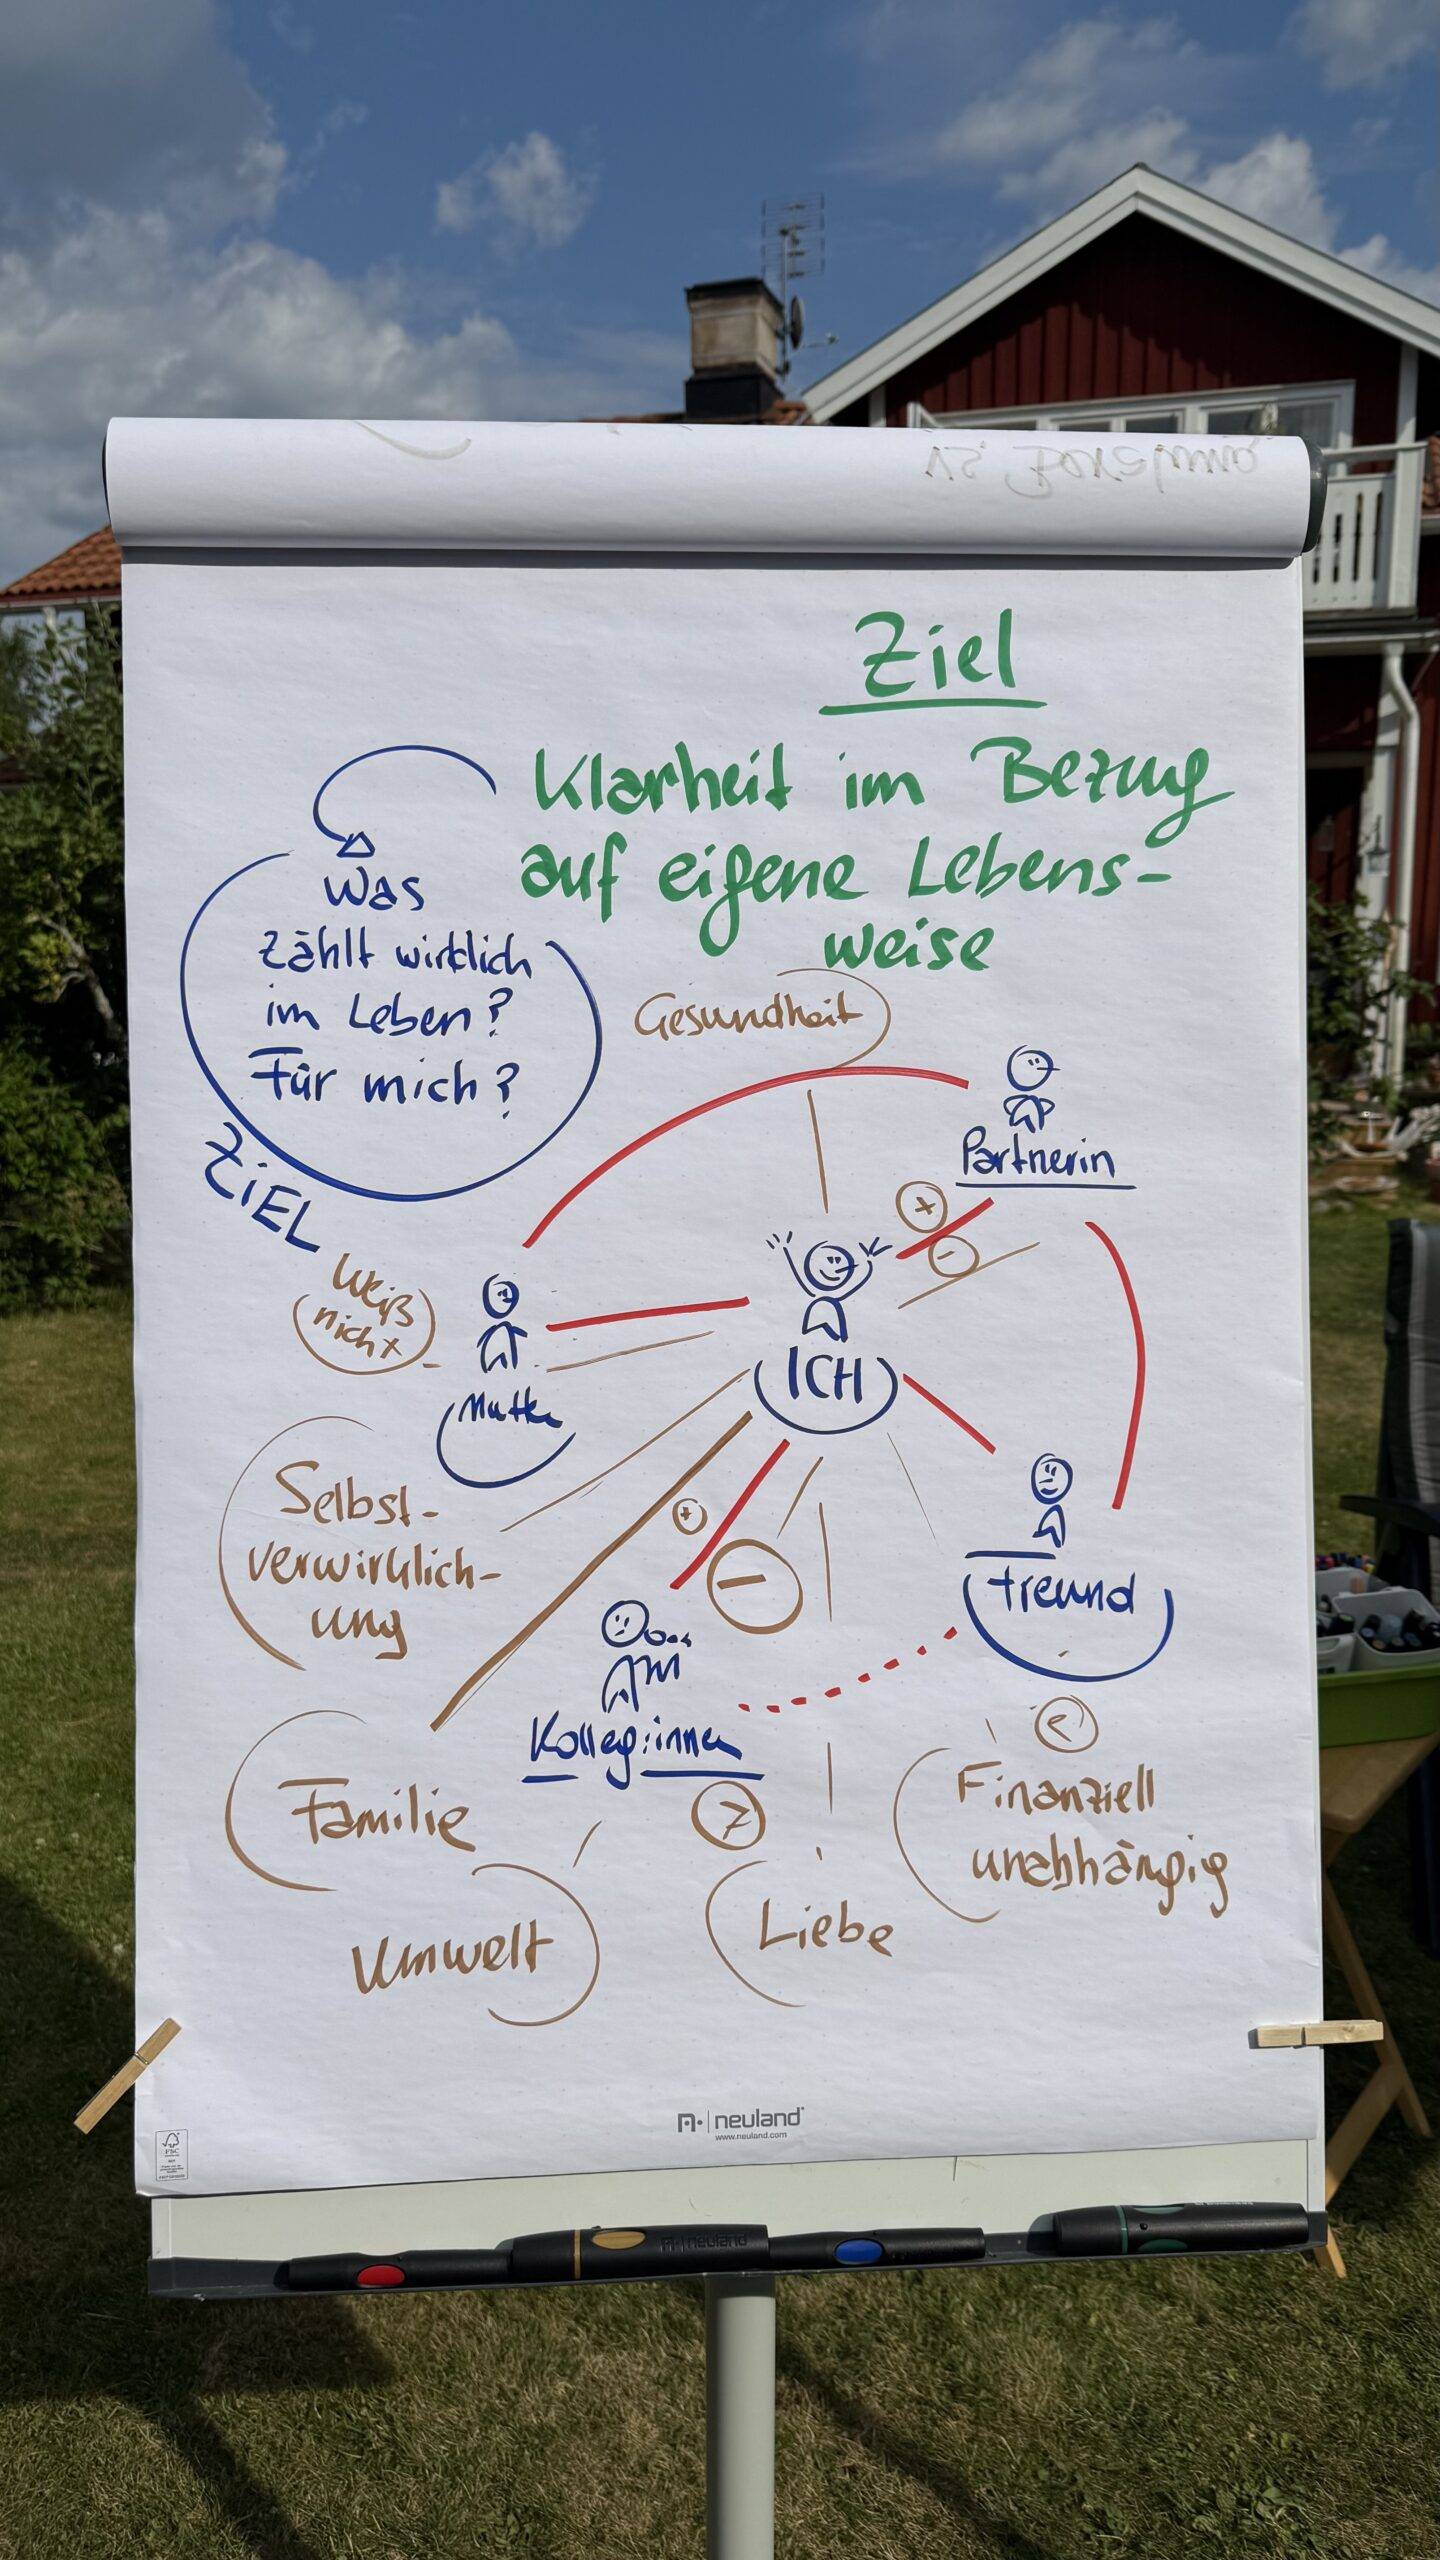 vs. Beratung
Ziel
Klarheit im Bezug
auf eigene Lebens-
weise
Was
zählt wirklich
im Leben?
Für mich?
ZIEL
Gesundheit
Partnerin
+
-
Weiß
nicht
Mutter
ICH
Selbst-
verwirklich-
ung
+
-
Freund
Kolleg:innen
Familie
7
Finanziell
unabhängig
Umwelt
Liebe
neuland
www.neuland.com
FSC
neuland